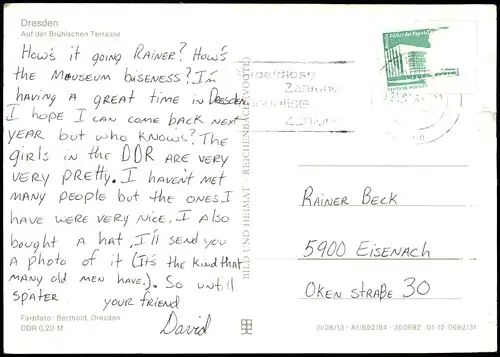 Dresden
Auf der Brühlschen Terrasse
How's it going Rainer? How's
the Mouseum buseness? I'm
having a great time in Dresden.
I hope I can come back next
year but who knows? The
girls in the DDR are very
very pretty. I haven't met
many people but the ones I
have were very nice. I also
bought a hat, I'll send you
a photo of it (It's the kind that
many old men have.). So untill
später
your friend
David
Farbfoto: Berthold, Dresden
DDR 0,20 M
BILD UND HEIMAT · REICHENBACH (VOGTL)
Palast der Republik
Bargeldlose
Zahlung
Zahlung
Rainer Beck
5900 Eisenach
Oken straße 30
III/26/13 · A1/692/84 · 300692 01 12 0692/31